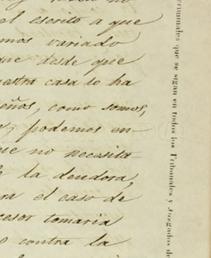 el escrito a que
mos variado
que desde que
uestra casa lo ha
eños, como somos,
o, podemos en-
ue no necesita
la deudora,
ra el caso de
cesor tomaria
contra la
criminales que se sigan en todos los Tribunales y Juzgados de